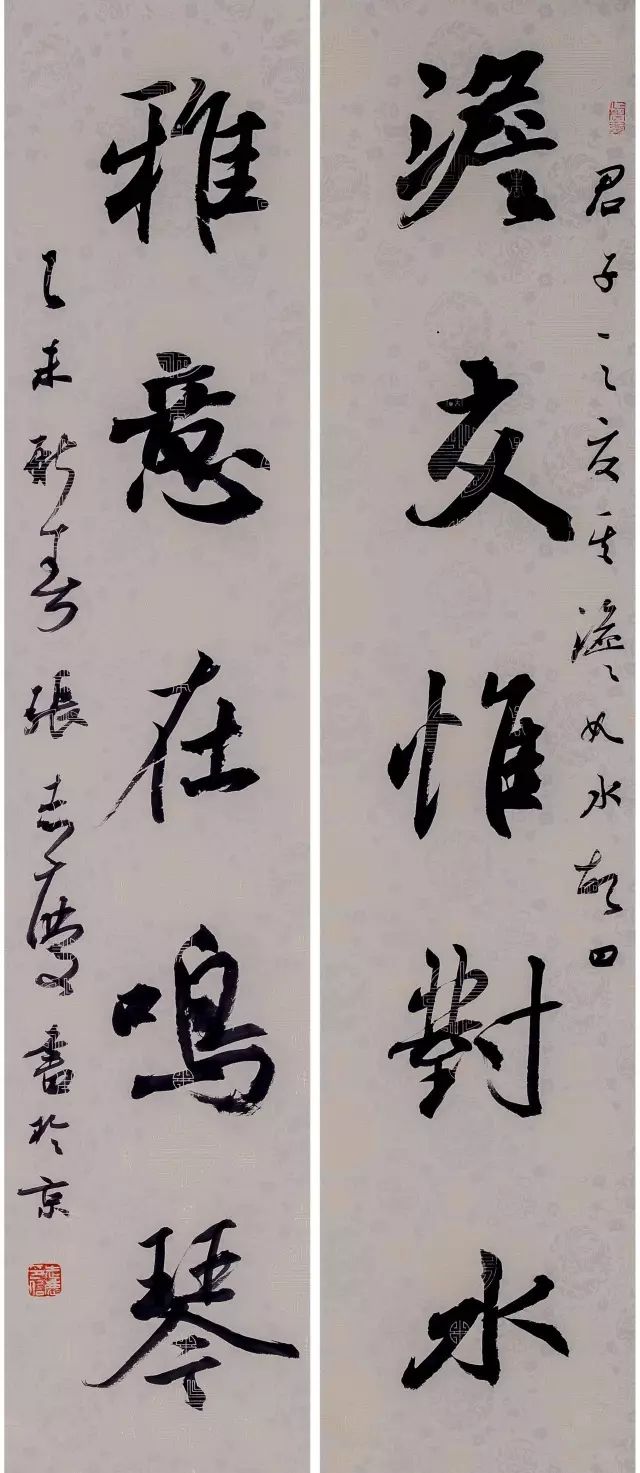 君子之交其澹如水
澹交惟對水
雅意在鳴琴
乙未新春張志慶書於京